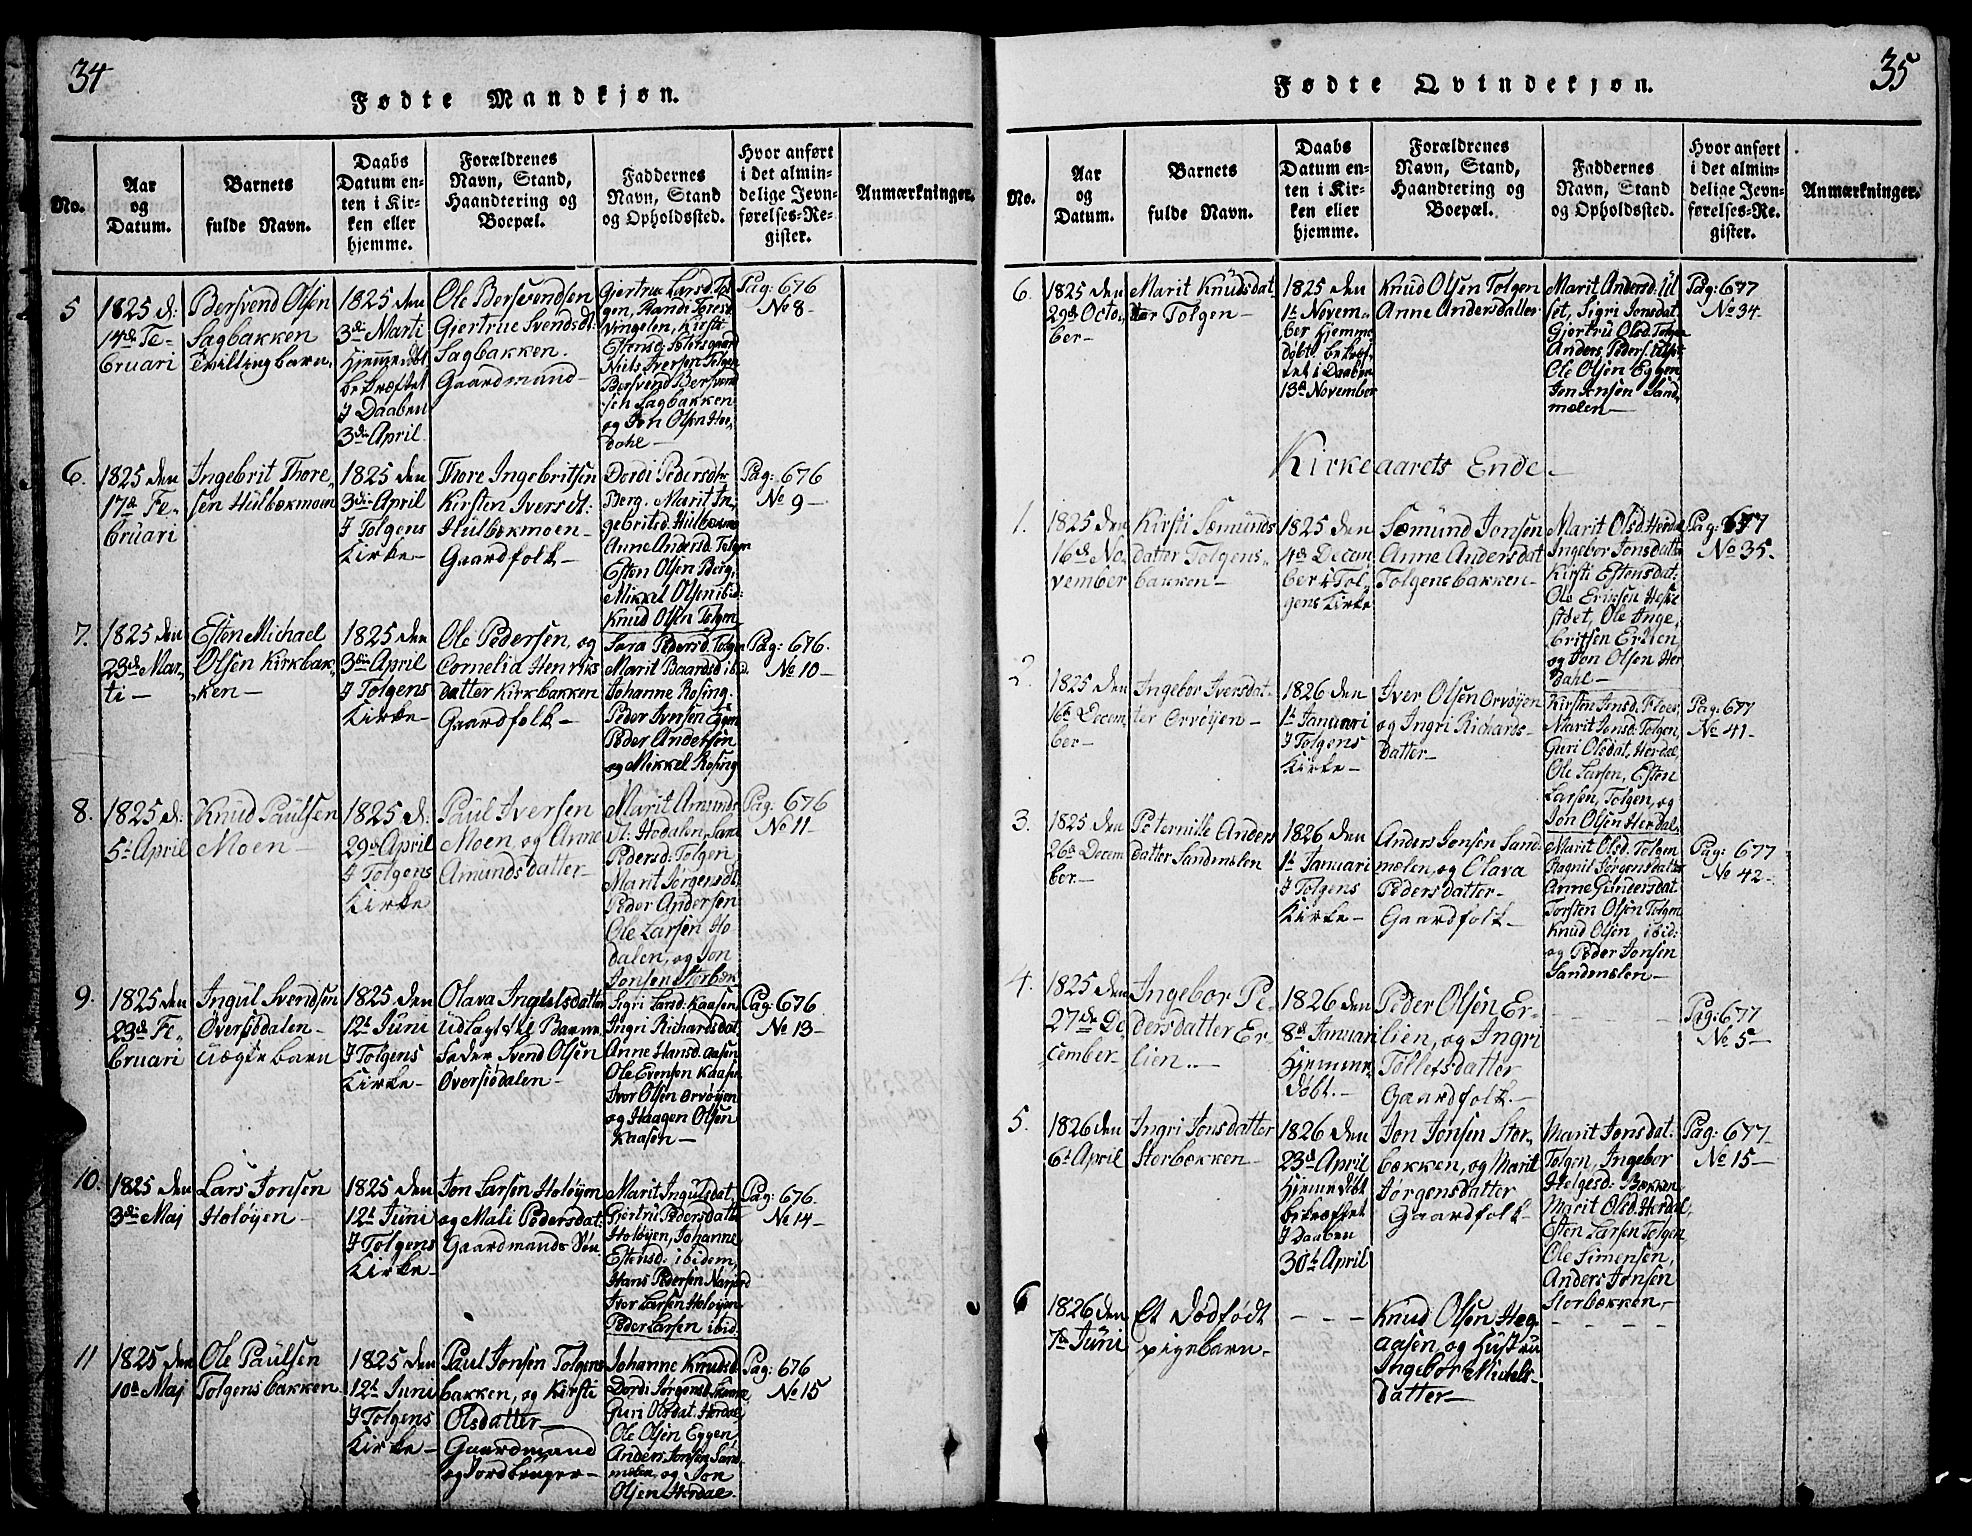 34
Fødte Mandkjøn.
No.
Aar
og
Datum.
Barnets
fulde Navn.
Daabs
Datum en-
ten i Kir-
ken eller
hjemme.
Forældrenes
Navn, Stand,
Haandtering og
Boepæl.
Faddernes
Navn, Stand
og Opholdssted.
Hvor anført
i det almin-
delige Jevn-
førelses-Re-
gister.
Anmærkninger.
5
1825 d:
14de Fe-
bruari
Bersvend Olsen
Sagbakken
Tvilling barn.
1825 den
3de Marti
Hjemmedøbt
bekræftet
I Daaben
3de April
Ole Bersvendsen
Gjertrue Svendsdt:
Sagbakken.
Gaardmand-
Gjertrue Larsd. Tol
gen, Randi Torsd
Vingelen, Kirsti
Estensd:
Niels Iversen Tolgen
Bersvend Bersvend
sen Sagbakken
og Jon Olsen Her,
dahl-
Pag: 676
No 8-
6.
1825 den
17de Fe-
bruari
Ingebrit Thore-
sen Hulbækmoen
1825 den
3de April
I Tolgens
Kirke-
Thore Ingebritsen
Kirsten Iversdt:
Hulbekmoen-
Gaardfolk-
Dordi Pedersdtr
Berg. Marit In-
gebritsd: Hulbækmo
Anne Andersd. Tolgen
Esten Olsen Berg,
Mikkel Olsen ibid:
Knud Olsen Tolgen
Pag: 676
No 9-
7.
1825 den
23de Mar-
ti-
Esten Michael
Olsen Kirkbak-
ken-
1825 den
3de April
I Tolgens
Kirke-
Ole Pedersen, og
Cornelia Henriks
datter Kirkbakken
Gaardfolk-
Sara Pedersd. Tolgen
Marit Baardsd ibid.
Johanne Rosing.
Peder Iversen Eggen
Peder Andersen
og Mikkel Rosing
Pag: 676.
No 10-
8.
1825 d:
5t April
Knud Paulsen
Moen-
1825 d:
29de April
I Tolgens
Kirke
Paul Iversen
Moen, og Anne
Amunds datter-
Marit Amunds
dt: Hodalen,
Pedersd: Tolgen,
Marit Jørgensdt,
Peder Andersen
Ole Larsen Ho
dalen, og Jon
Jonsen Storbæk
Pag: 676
No 11-
9.
1825 den
23de Fe-
bruari
Ingul Svendsen
Øversiødalen-
uægte barn
1825 den
12t Juni
I Tolgens
Kirke-
Olava Ingulsdatter
udlagt til Barne
Fader Svend Olsen
Øversiødalen-
Sigri Larsd: Kaasen
Ingri Richardsdat,
Anne Hansd. Aasen
Ole Evensen Kaasen
Iver Olsen Orvøyen
og Haagen Olsen
Kaasen-
Pag: 676
No 13-
10.
1825 den
3de Maj
Lars Jonsen
Holøyen-
1825 den
12t Juni
I Tolgens
Kirke-
Jon Larsen Holøyen
og Mali Pedersdat:
Gaardmands Søn
Marit Ingulsdat,
Gjertru Pedersdatter
Holøyen, Johanne
Estensd: ibidem,
Hans Pedersen Narjord
Iver Larsen Holøyen
Peder Larsen ibid.
Pag: 676.
No 14-
11
1825 den
10de Maj
Ole Paulsen
Tolgens bakken
1825 den
12t Juni
I Tolgens
Kirke-
Paul Jonsen Tolgens
bakken, og Kirsti
Olsdatter-
Gaardmand
og Jordbruger-
Johanne Knudsd.
Dordi Jørgensd.
Guri Olsdat. Herdal
Ole Olsen Eggen,
Anders Jonsen Sand
mælen, og Jon
Olsen Herdal.
Pag: 676
No 15
35
Fødte Qvindekjøn.
No.
Aar
og
Datum.
Barnets
fulde Navn.
Daabs
Datum en-
ten i Kir-
ken eller
hjemme.
Forældrenes
Navn, Stand,
Haandtering og
Boepæl.
Faddernes
Navn, Stand
og Opholdssted.
Hvor anført
i det almin-
delige Jevn-
førelses-Re-
gister.
Anmærkninger.
6.
1825 den
29de Octo-
ber-
Marit Knudsdat
ter Tolgen-
1825 den
1t Novem-
ber Hjemme
døbt. bekræf-
tet i Daaben
13de November
Knud Olsen Tolgen
Anne Andersdatter
Marit Andersd: Ul
set, Sigri Jonsdat.
Gjertru Olsd. Tolgen
Anders Peders. Ulset
Ole Olsen Eggen
Jon Jensen Sand,
mælen-
Pag: 677
No 34.
Kirkeaarets Ende-
1.
1825 den
16de No
vember
Kirsti Sæmunds
datter Tolgens-
bakken-
1825 den
4de Decem
ber i Tol-
gens Kirke
Sæmund Jonsen
Anne Andersdat
Tolgensbakken-
Marit Olsd. Herdal
Ingebor Jonsdatter
Kirsti Estensdat:
Ole Erichsen
Ole Inge,
britsen Erlien
og Jon Olsen Her
dahl-
Pag: 677
No 35-
2.
1825 den
16de Decem
ber-
Ingebor Iversdat-
ter Orvøyen-
1826 den
1t Januari
I Tolgens
Kirke-
Iver Olsen Orvøyen
og Ingri Richards-
datter-
Kirsten Jonsd. Floer,
Marit Jonsd: Tolgen,
Guri Olsdat, Herdal,
Ole Larsen, Esten
Larsen, Tolgen, og
Jon Olsen Herdal.
Pag: 677
No 41-
3.
1825 den
26de Decem
ber-
Peternille Anders
datter Sandmælen
1826 den
1t Januari
I Tolgens
Kirke-
Anders Jonsen Sand
mælen, og Olava
Pedersdatter-
Gaardfolk-
Marit Olsd. Tolgen
Ragnil Jørgensdatter
Anne Gundersdat
Torsten Olsen Tolgen
Knud Olsen, ibid:
og Peder Jonsen
Sandmælen-
Pag: 677
No 42-
4.
1825 den
27de De
cember-
Ingebor Pe-
dersdatter Er-
lien.-
1826 den
8de Januari
Hjemme
døbt.-
Peder Olsen Er-
lien, og Ingri
Tollefsdatter
Gaardfolk.-
- - -
Pag: 677
No 5-
5.
1826 den
6t April
Ingri Jonsdatter
Storbækken-
1826 den
23de April
Hjemmedøbt
bekræftet
I Daaben
30te April
Jon Jonsen Stor-
bækken, og Marit
Jørgensdatter
Gaardfolk-
Marit Jonsdat:
Tolgen, Ingebor
Helgesd: Bækken
Marit Olsd. Herdal,
Esten Larsen Tolgen
Ole Simensen,
Anders Jonsen
Storbækken,-
Pag: 677-
No 15-
6
1826 den
7de Juni
Et dødfødt
pigebarn-
- - -
Knud Olsen Heg
aasen og Hustru
Ingebor Michels-
datter-
- - - -